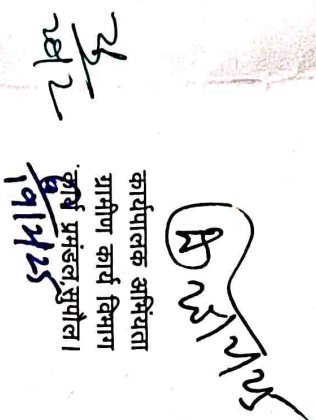 कार्यपालक अभियंता
ग्रामीण कार्य विभाग
कार्य प्रमंडल, सुपौल।
19/2/25
25/2/25